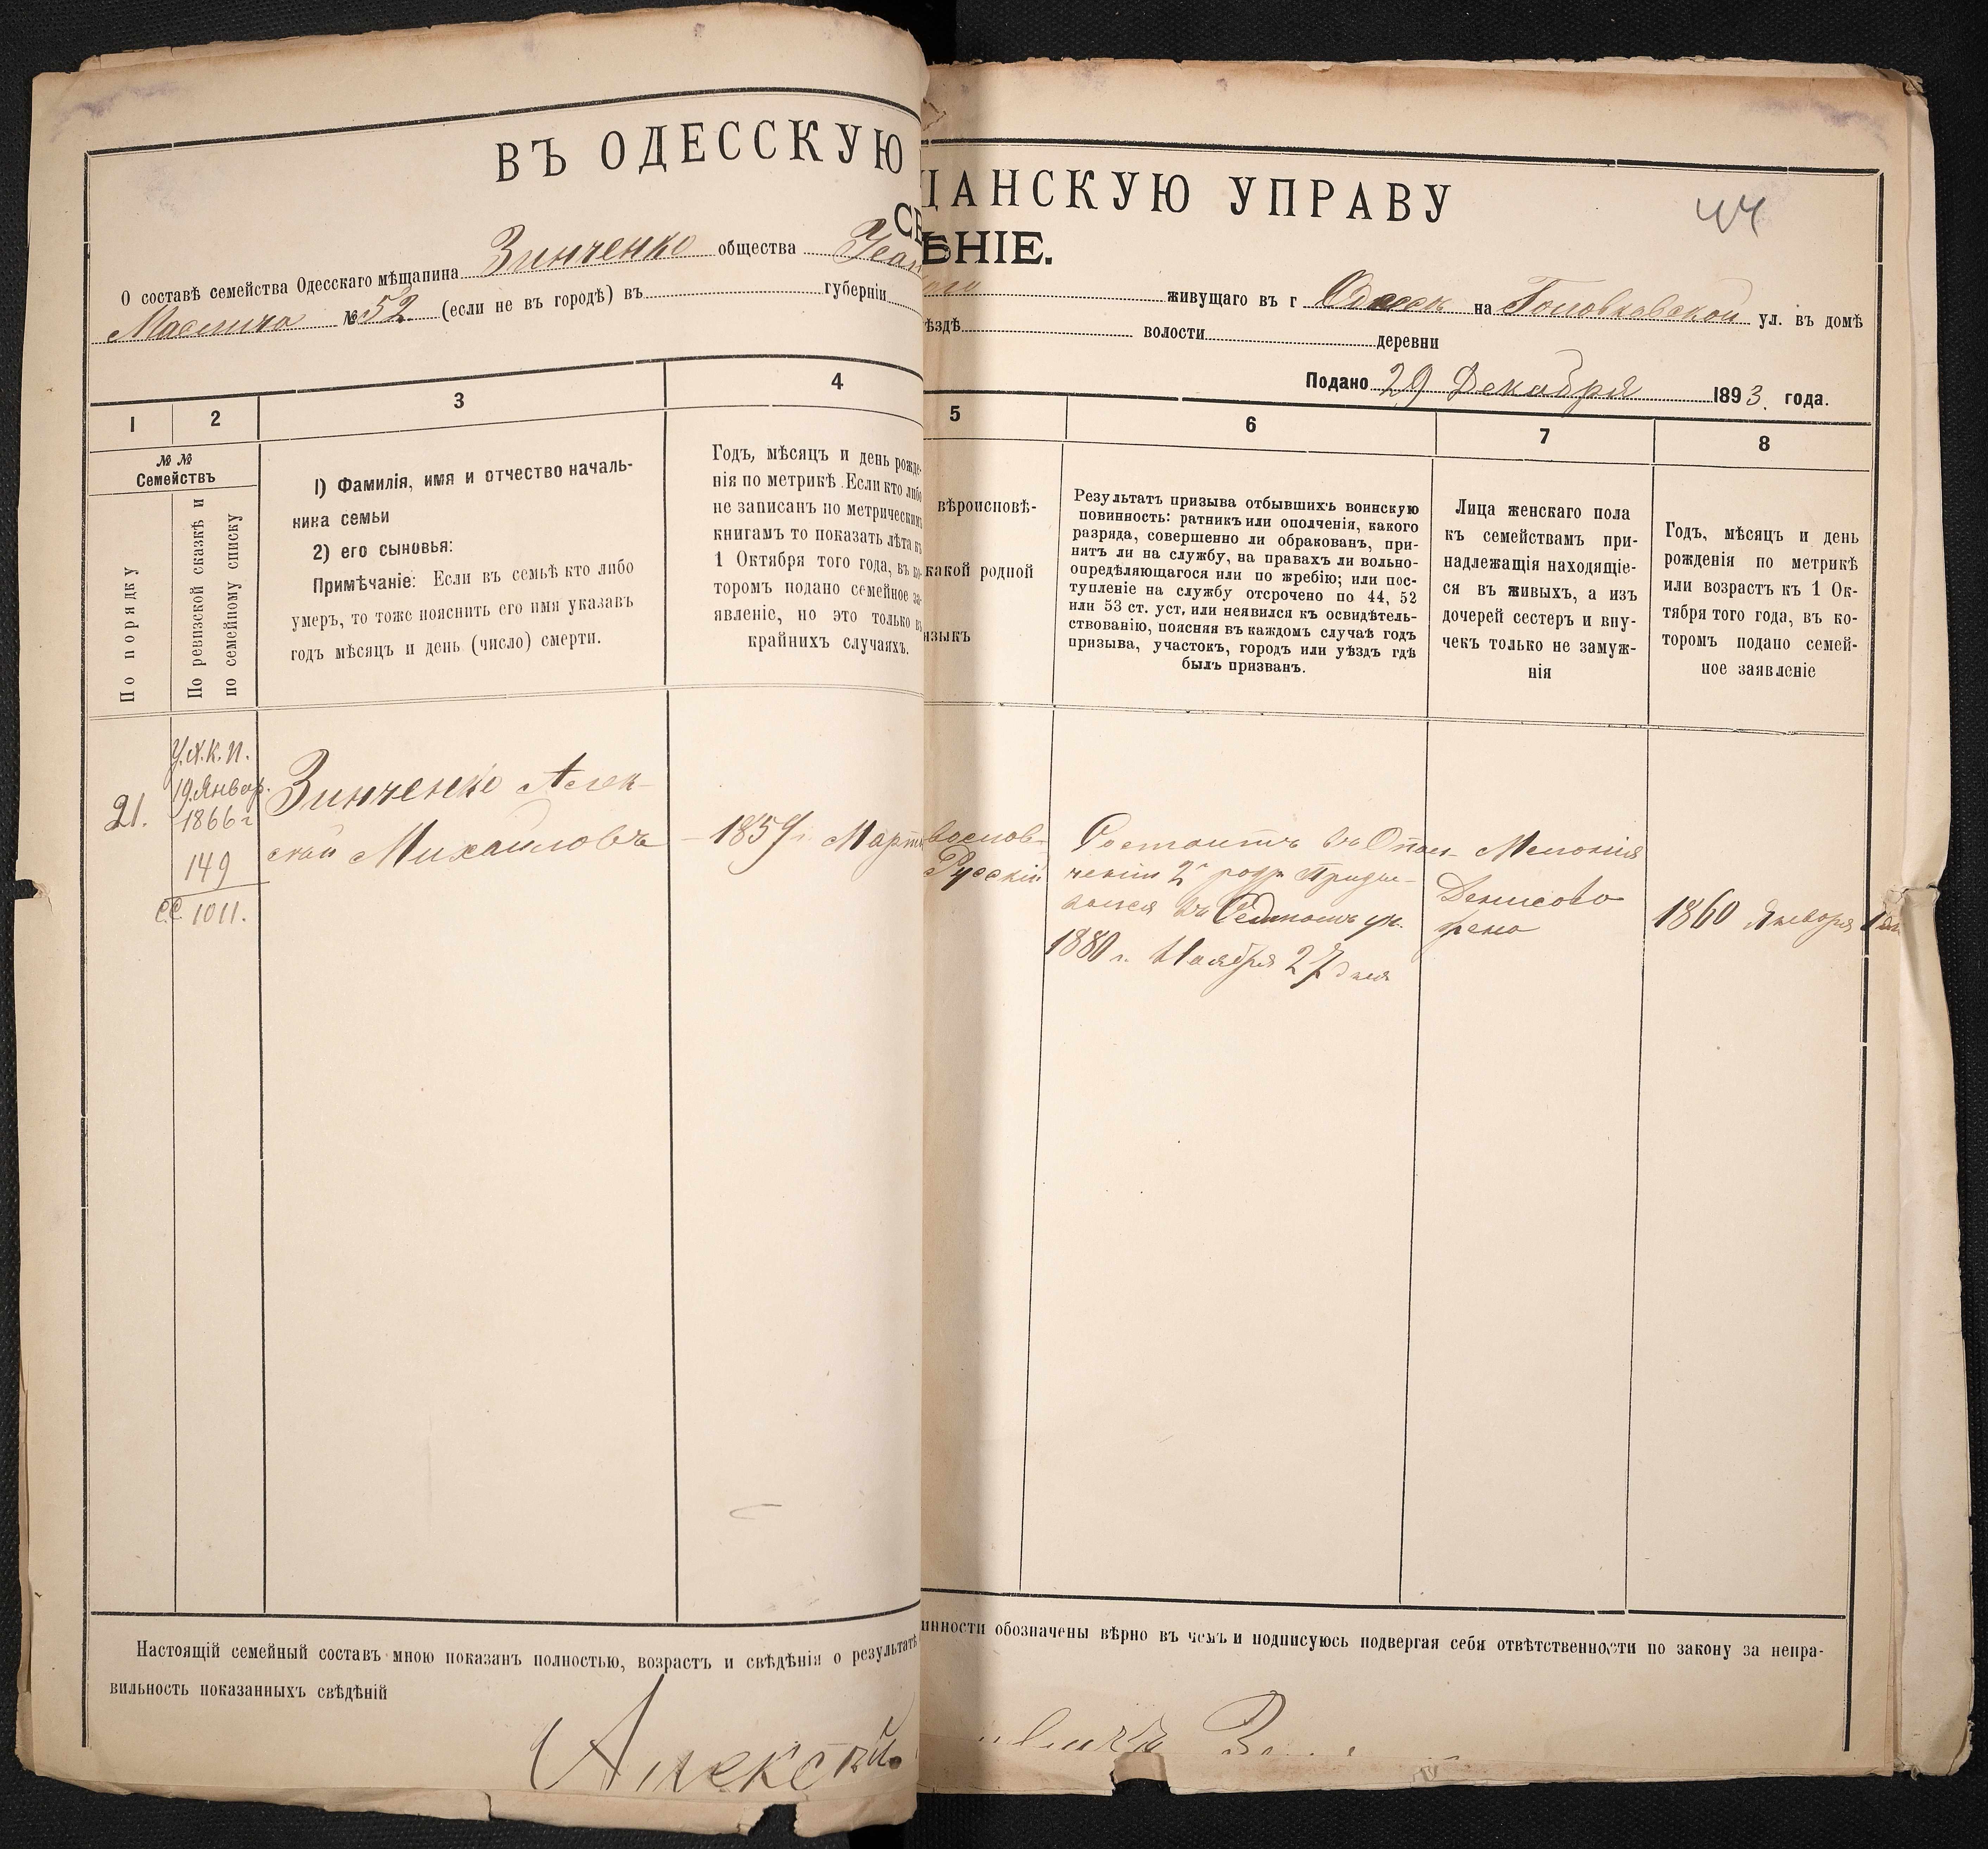 ВЪ ОДЕССКУЮ
ЩАНСКУЮ УПРАВУ
44
СЕ
ѢНІЕ.
О составѣ семейства Одесскаго мѣщанина Зинченко общества
живущаго въ г на ул. въ домѣ
№ 52 (если не въ городѣ) въ губерніи
ѣздѣ волости деревни
Подано 29 Декабря 1893. года.
1 2 3 4
5 6 7 8
№№
Семействъ
По порядку
По ревизской сказкѣ и
по семейному списку
1) Фамилія, имя и отчество началь-
ника семьи
2) его сыновья:
Примѣчаніе: Если въ семьѣ кто либо
умеръ, то тоже пояснить его имя указавъ
годъ мѣсяцъ и день (число) смерти.
Годъ, мѣсяцъ и день рожде-
нія по метрикѣ. Если кто либо
не записанъ по метрическим
книгамъ то показать лѣта къ
1 Октября того года, въ ко-
торомъ подано семейное за-
явленіе, но это только въ
крайнихъ случаяхъ.
вѣроисповѣ-
какой родной
языкъ
Результатъ призыва отбывшихъ воинскую
повинность: ратникъ или ополченія, какого
разряда, совершенно ли обракован, при-
нятъ ли на службу, на правахъ ли вольно-
опредѣляющагося или по жребію; или пос-
тупленіе на службу отсрочено по 44, 52
или 53 ст. уст, или неявился къ освидѣтель-
ствованію, поясняя въ каждомъ случаѣ годъ
призыва, участокъ, городъ или уѣздъ гдѣ
былъ призванъ.
Лица женскаго пола
къ семействамъ при-
надлежащія находящіе-
ся въ живыхъ, а изъ
дочерей сестеръ и вну-
чекъ только не замуж-
нія
Годъ, мѣсяцъ и день
рожденія по метрикѣ
или возрастъ къ 1 Ок-
тября того года, въ ко-
торомъ подано семей-
ное заявленіе
21.
19. Январ.
1866 г
149
1011.
Зинченко Алек-
сѣй Михаиловъ
Март
вослов-
Русскій
Состоитъ въ Опол-
ченіи 2
1880 г. Ноября 27 дня
Денисова
жена
1860 Января 1
Настоящій семейный составъ мною показанъ полностью, возрастъ и свѣдѣнія о результатѣ
инности обозначены вѣрно въ чемъ и подписуюсь подвергая себя отвѣтственности по закону за непра-
вильность показанныхъ свѣдѣній
Алексѣй